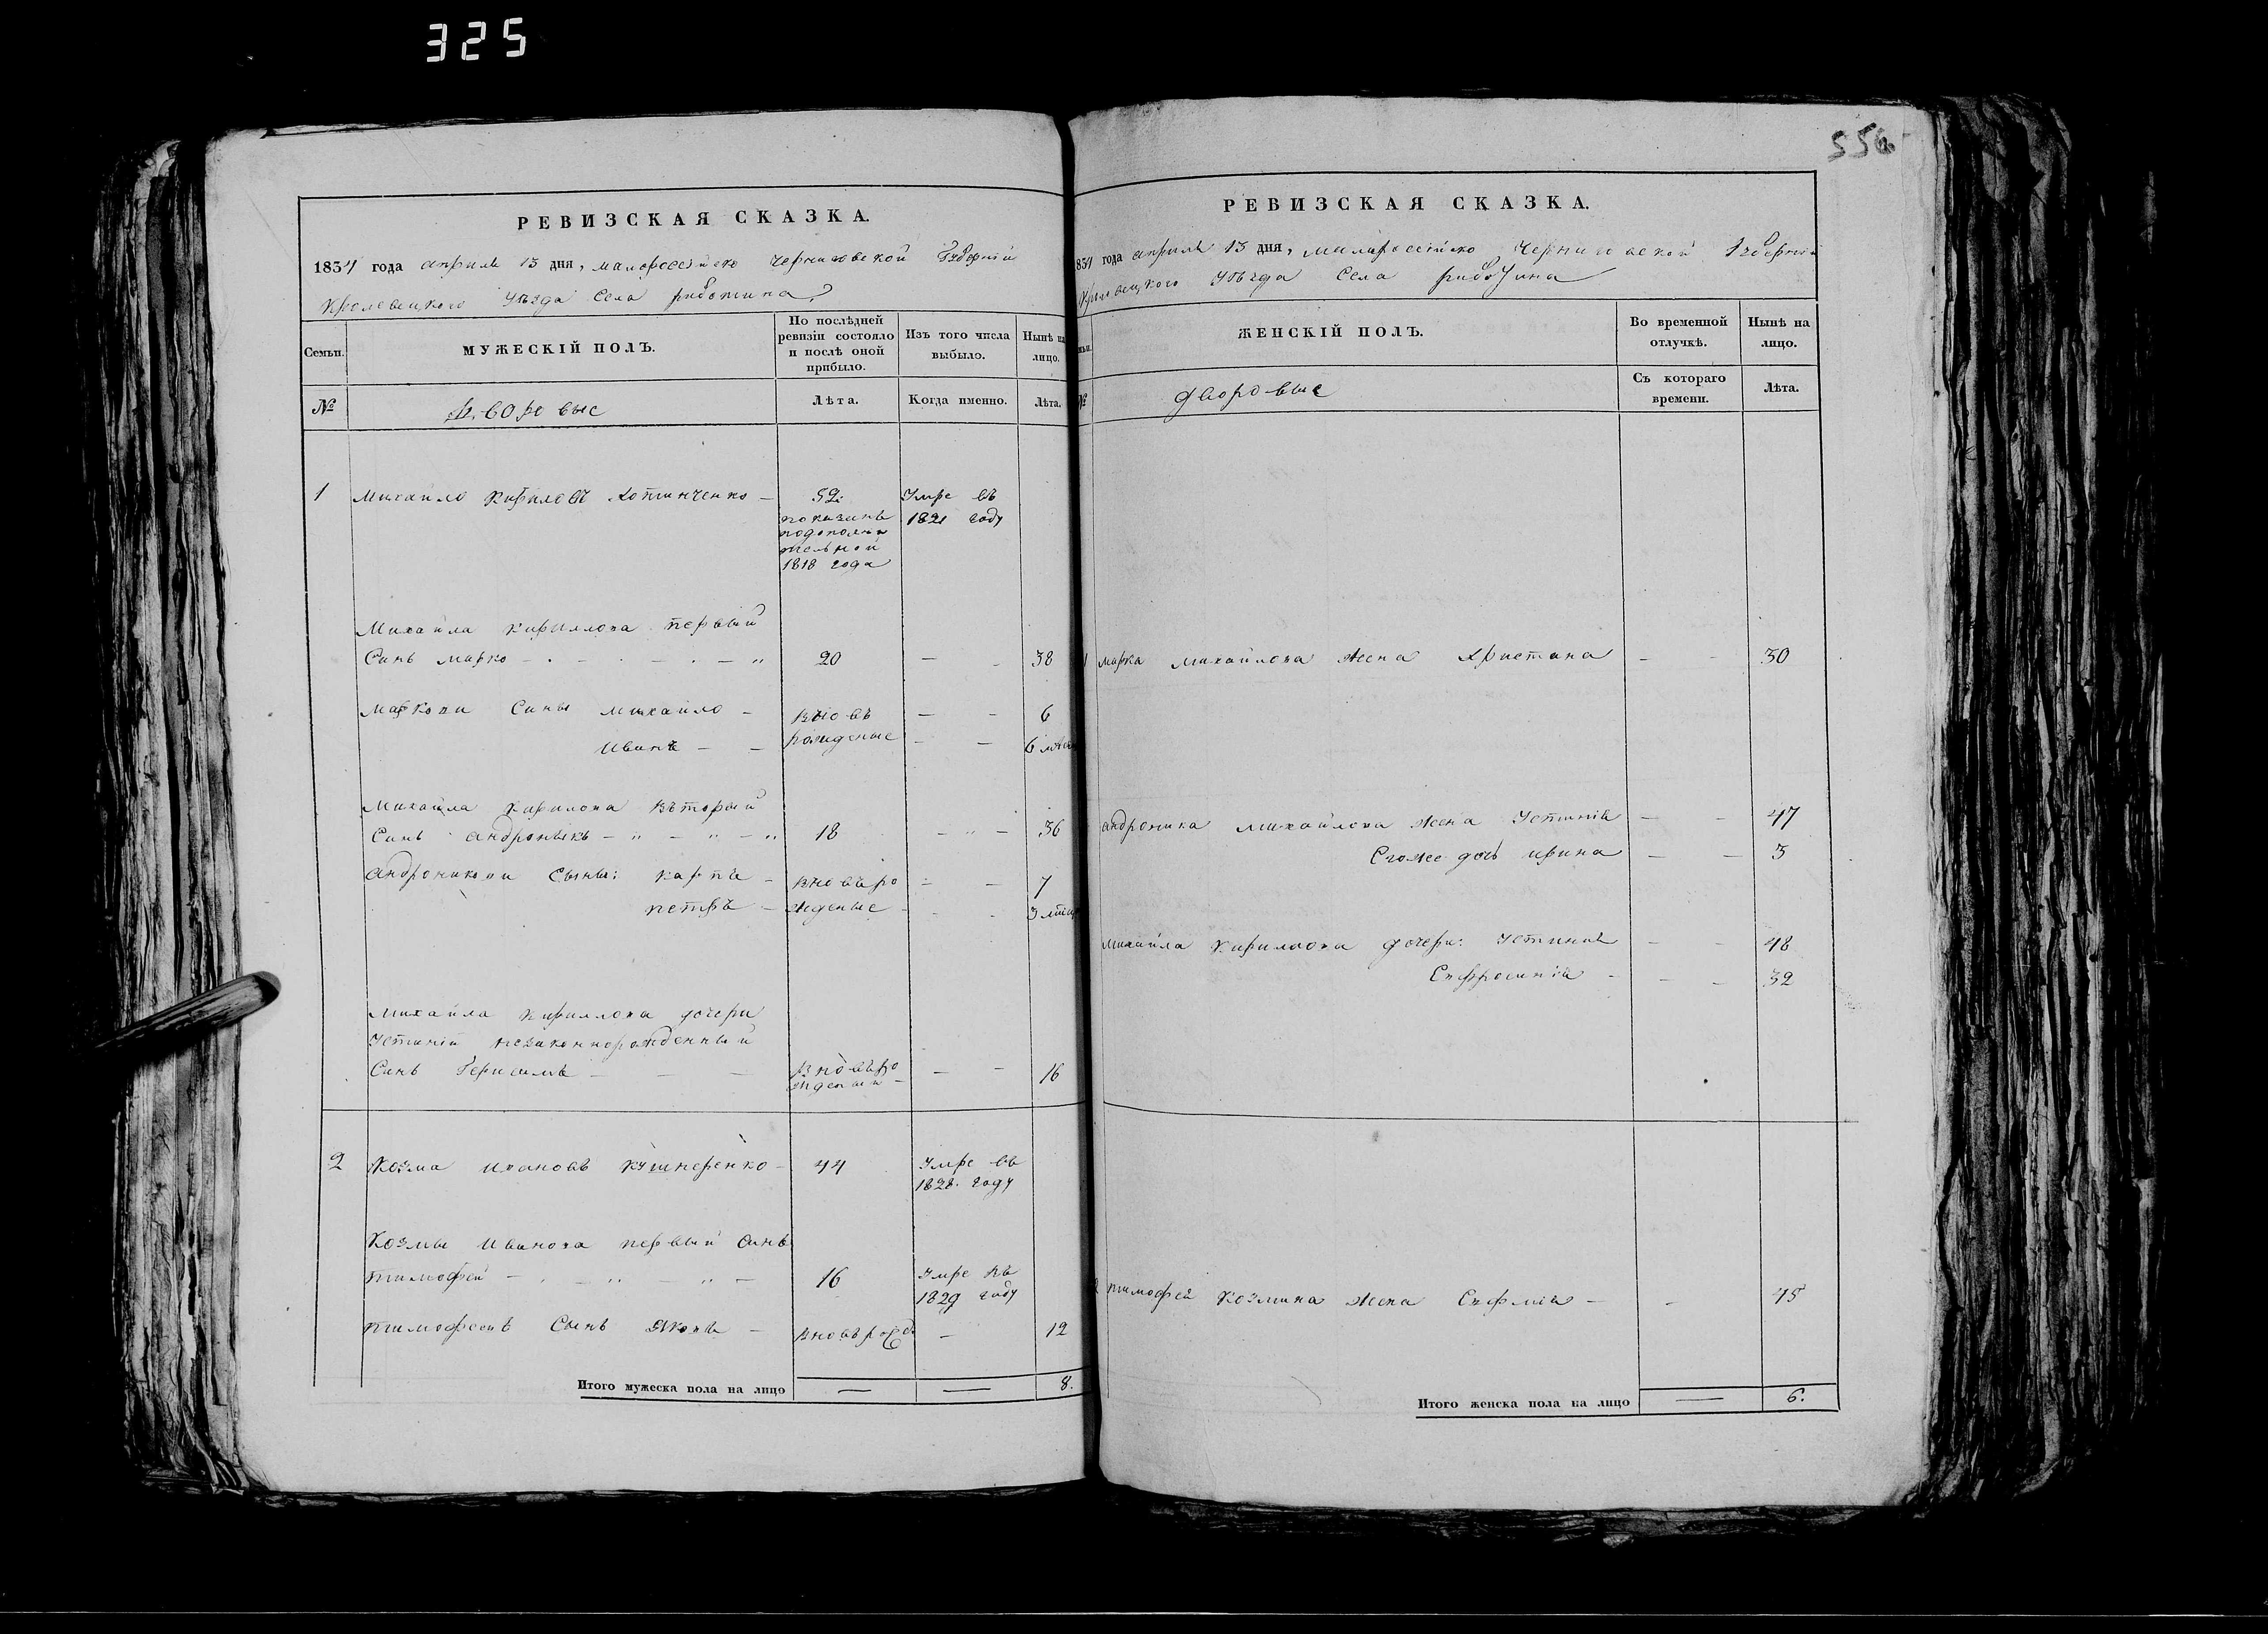 325
556
РЕВИЗСКАЯ СКАЗКА.
1834 года априля 13 дня, малоросейско Черниговской Губернии
Кролевицкого Уезда Села риботина
Семьи.
МУЖЕСКІЙ ПОЛЪ.
По послѣдней ревизіи состояло и послѣ оной прибыло.
Изъ того числа выбыло.
Нынѣ на лицо.
№
Дворовые
Лѣта.
Когда именно.
Лѣта.
1 Михайло Кириловъ Хотинченко — 52: Умре въ
показанъ 1821 году
подополни
тельной
1818 года
Михайла Кириллова первый
Синъ Марко 20 — - 38
Маркови Сины Михайло - вновь — - 6
Иванъ — — рожденые - — 6
Михайла Кирилова вторый
Синъ андроныкъ 18 36
андроникови Сыны: карпъ - вновъро - — 7
петръ — жденые 3
Михайла Кириллова дочери
Устиніи незаконнорожденный
Синъ Герасимъ — — — вновъро — — 16
жденый
2 Козма Ивановъ Кушнеренко - 44 Умре въ
1828. году
Козмы Иванова первый Синъ
тимофей 16 Умре въ
1829 году
тимофеевъ Сынъ Яковъ — вновърожд — 12
Итого мужеска пола на лицо — — 8.
РЕВИЗСКАЯ СКАЗКА.
1834 года априля 13 дня, малоросейско Черниговской Губерніи
Кролевицкого Уѣзда Села риботина
ЖЕНСКІЙ ПОЛЪ.
Во временной отлучкѣ.
Нынѣ на лицо.
№
дворовые
Съ котораго времени.
Лѣта.
1 марка михайлова жена Христина - - 30
андроника михайлова жена Устинія — - 47
Егоже дочь ирина — — 3
михайла Кирилова дочери: Устинія - - 48
Евфросинія - - - 32
2 тимофея Козмина жена Евфмія — - 45
Итого женска пола на лицо — 6.